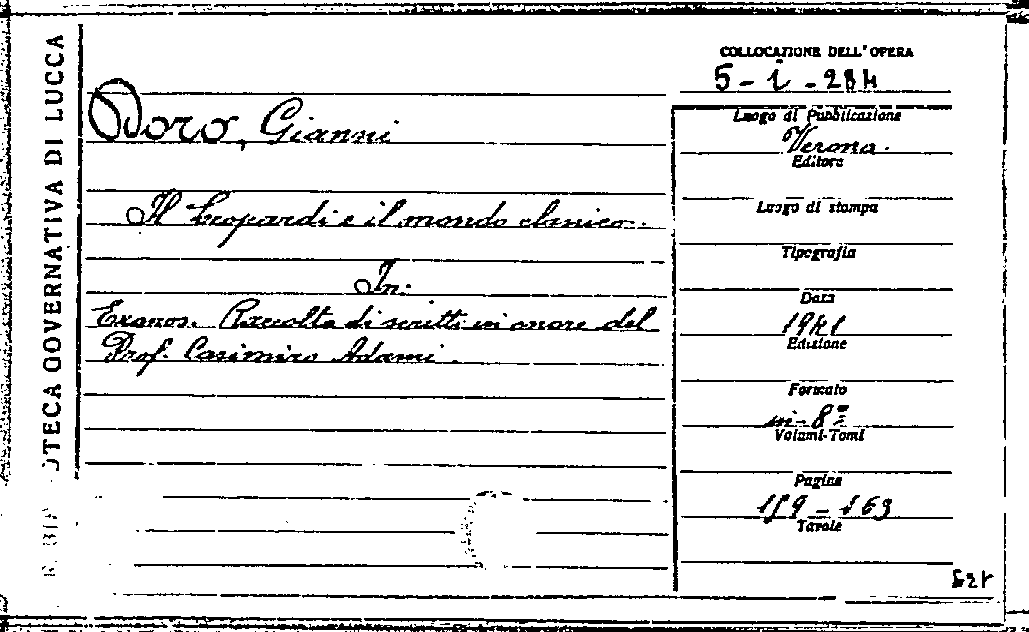 R. BIBLIOTECA GOVERNATIVA DI LUCCA
Doro, Gianni
Il Leopardi e il mondo classico.
In:
Eranos. Raccolta di scritti in onore del
Prof. Casimiro Adami.
COLLOCAZIONE DELL'OPERA
5-i-284
Luogo di Pubblicazione
Verona.
Editore
Luogo di stampa
Tipografia
Data
1941
Edizione
Formato
in-8º
Volumi-Tomi
Pagine
159-163
Tavole